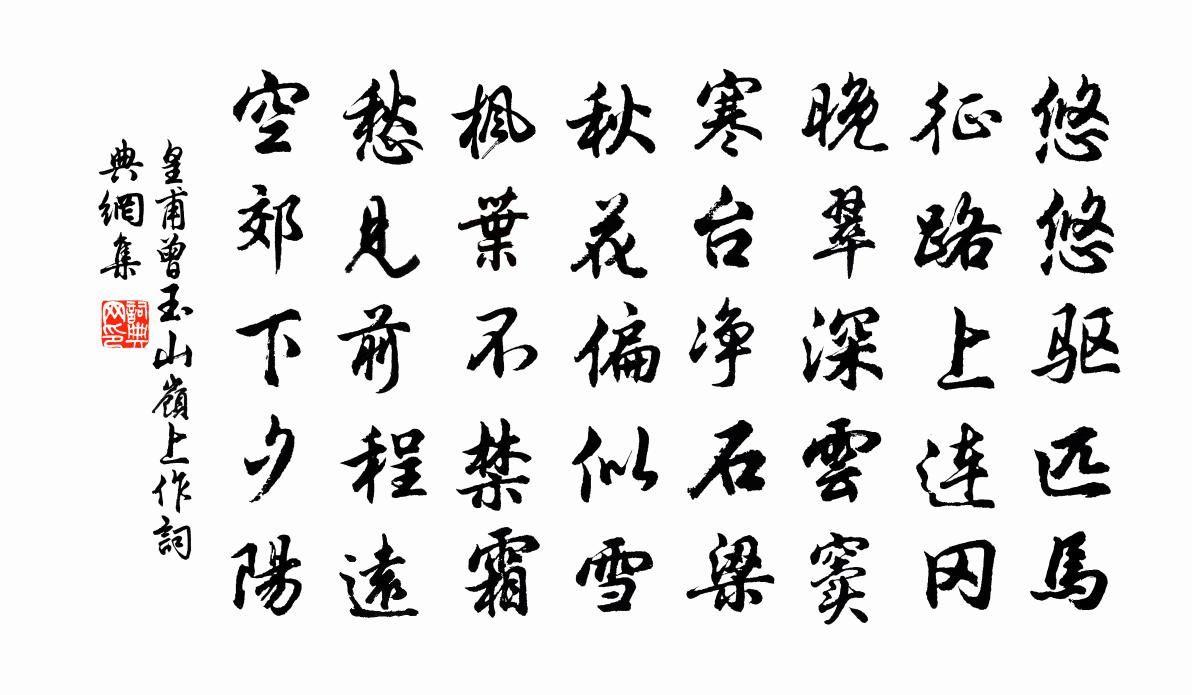 悠悠驱匹馬
征路上连冈
晚翠深雲窦
寒台净石梁
秋花偏似雪
枫葉不禁霜
愁見前程遠
空郊下夕陽
皇甫曾玉山嶺上作詞
典網集
詞典
网印